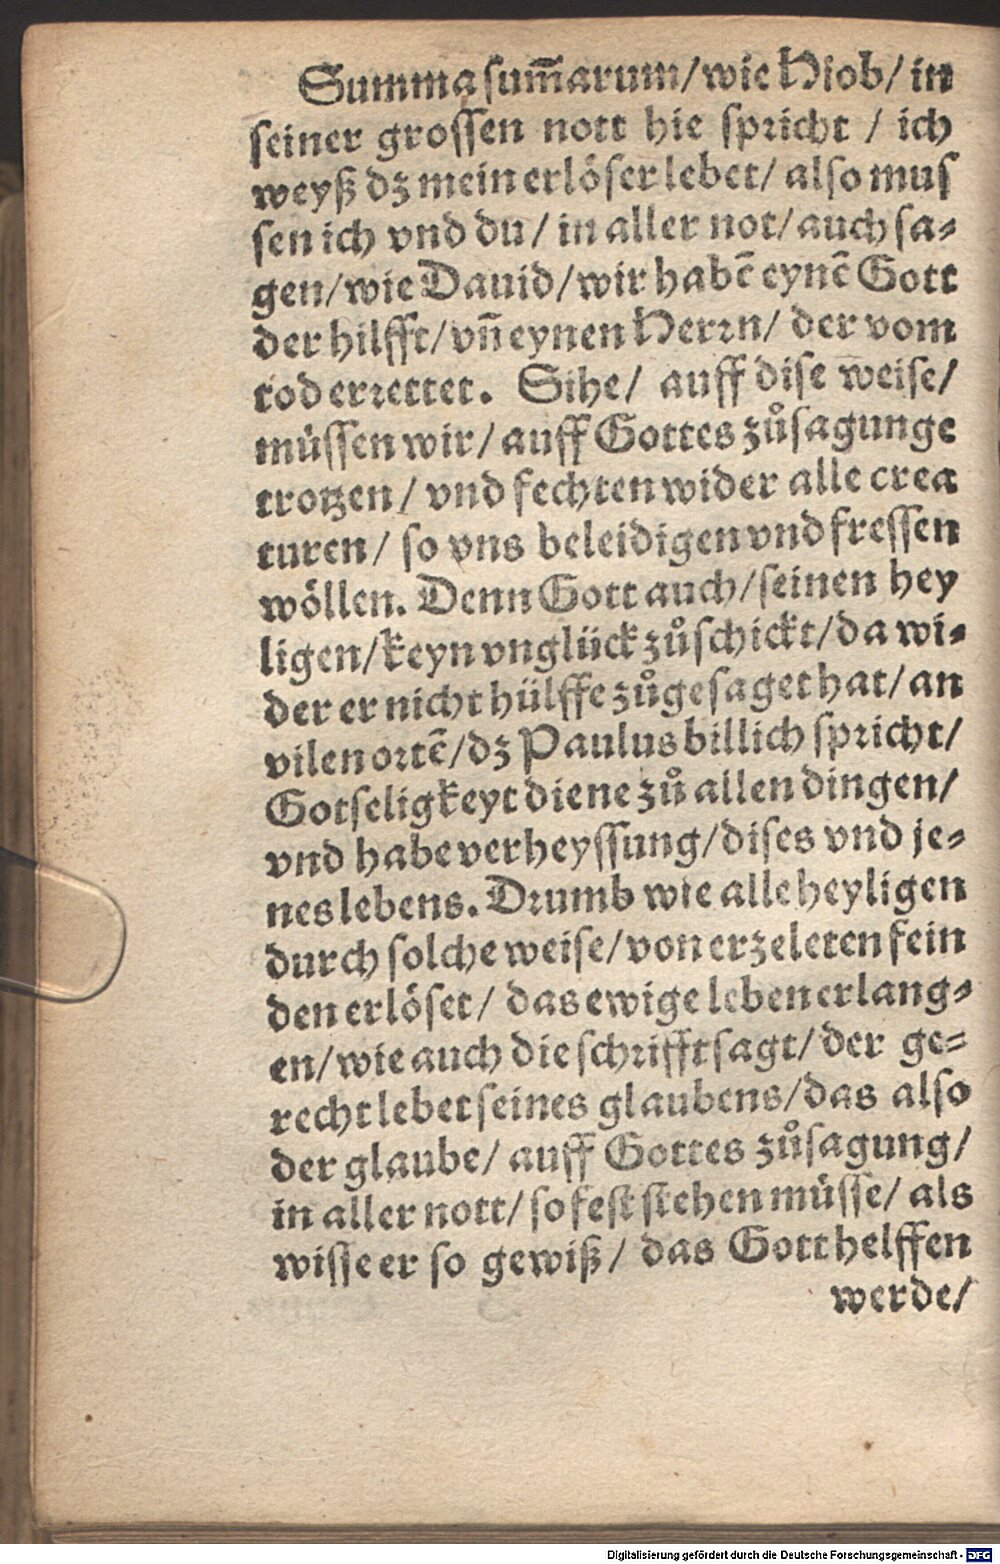 Summa sum̅arum/wie Hiob/ in
ſeiner groſſen nott hie ſpꝛicht / ich
weyß dʒ mein erlöſer lebet/ alſo muſ
ſen ich vnd du/ in aller not/ auch ſa⸗
gen/wie Dauid/wir habē eynē Gott
der hilfft/vn̄ eynen Herꝛn/ der vom
tod erꝛettet. Sihe/ auff diſe weiſe/
müſſen wir/ auff Gottes zůſagunge
trotzen/ vnd fechten wider alle crea
turen/ ſo vns beleidigen vnd freſſen
wöllen. Denn Gott auch/ſeinen hey
ligen/keyn vnglück zůſchickt/da wi⸗
der er nicht hülffe zůgeſaget hat/ an
vilen oꝛtē/dʒ Paulus billich ſpꝛicht/
Gotſeligkeyt diene zů allen dingen/
vnd habe verheyſſung/diſes vnd je⸗
nes lebens. Dꝛumb wie alle heyligen
durch ſolche weiſe/von erzeleten fein
den erlöſet/ das ewige leben erlang⸗
en/wie auch die ſchꝛifft ſagt/der ge⸗
recht lebet ſeines glaubens/das alſo
der glaube/ auff Gottes zůſagung/
in aller nott/ ſo feſt ſtehen müſſe/ als
wiſſe er ſo gewiß/ das Gott helffen
werde/
Digitalisierung gefördert durch die Deutsche Forschungsgemeinschaft - DFG